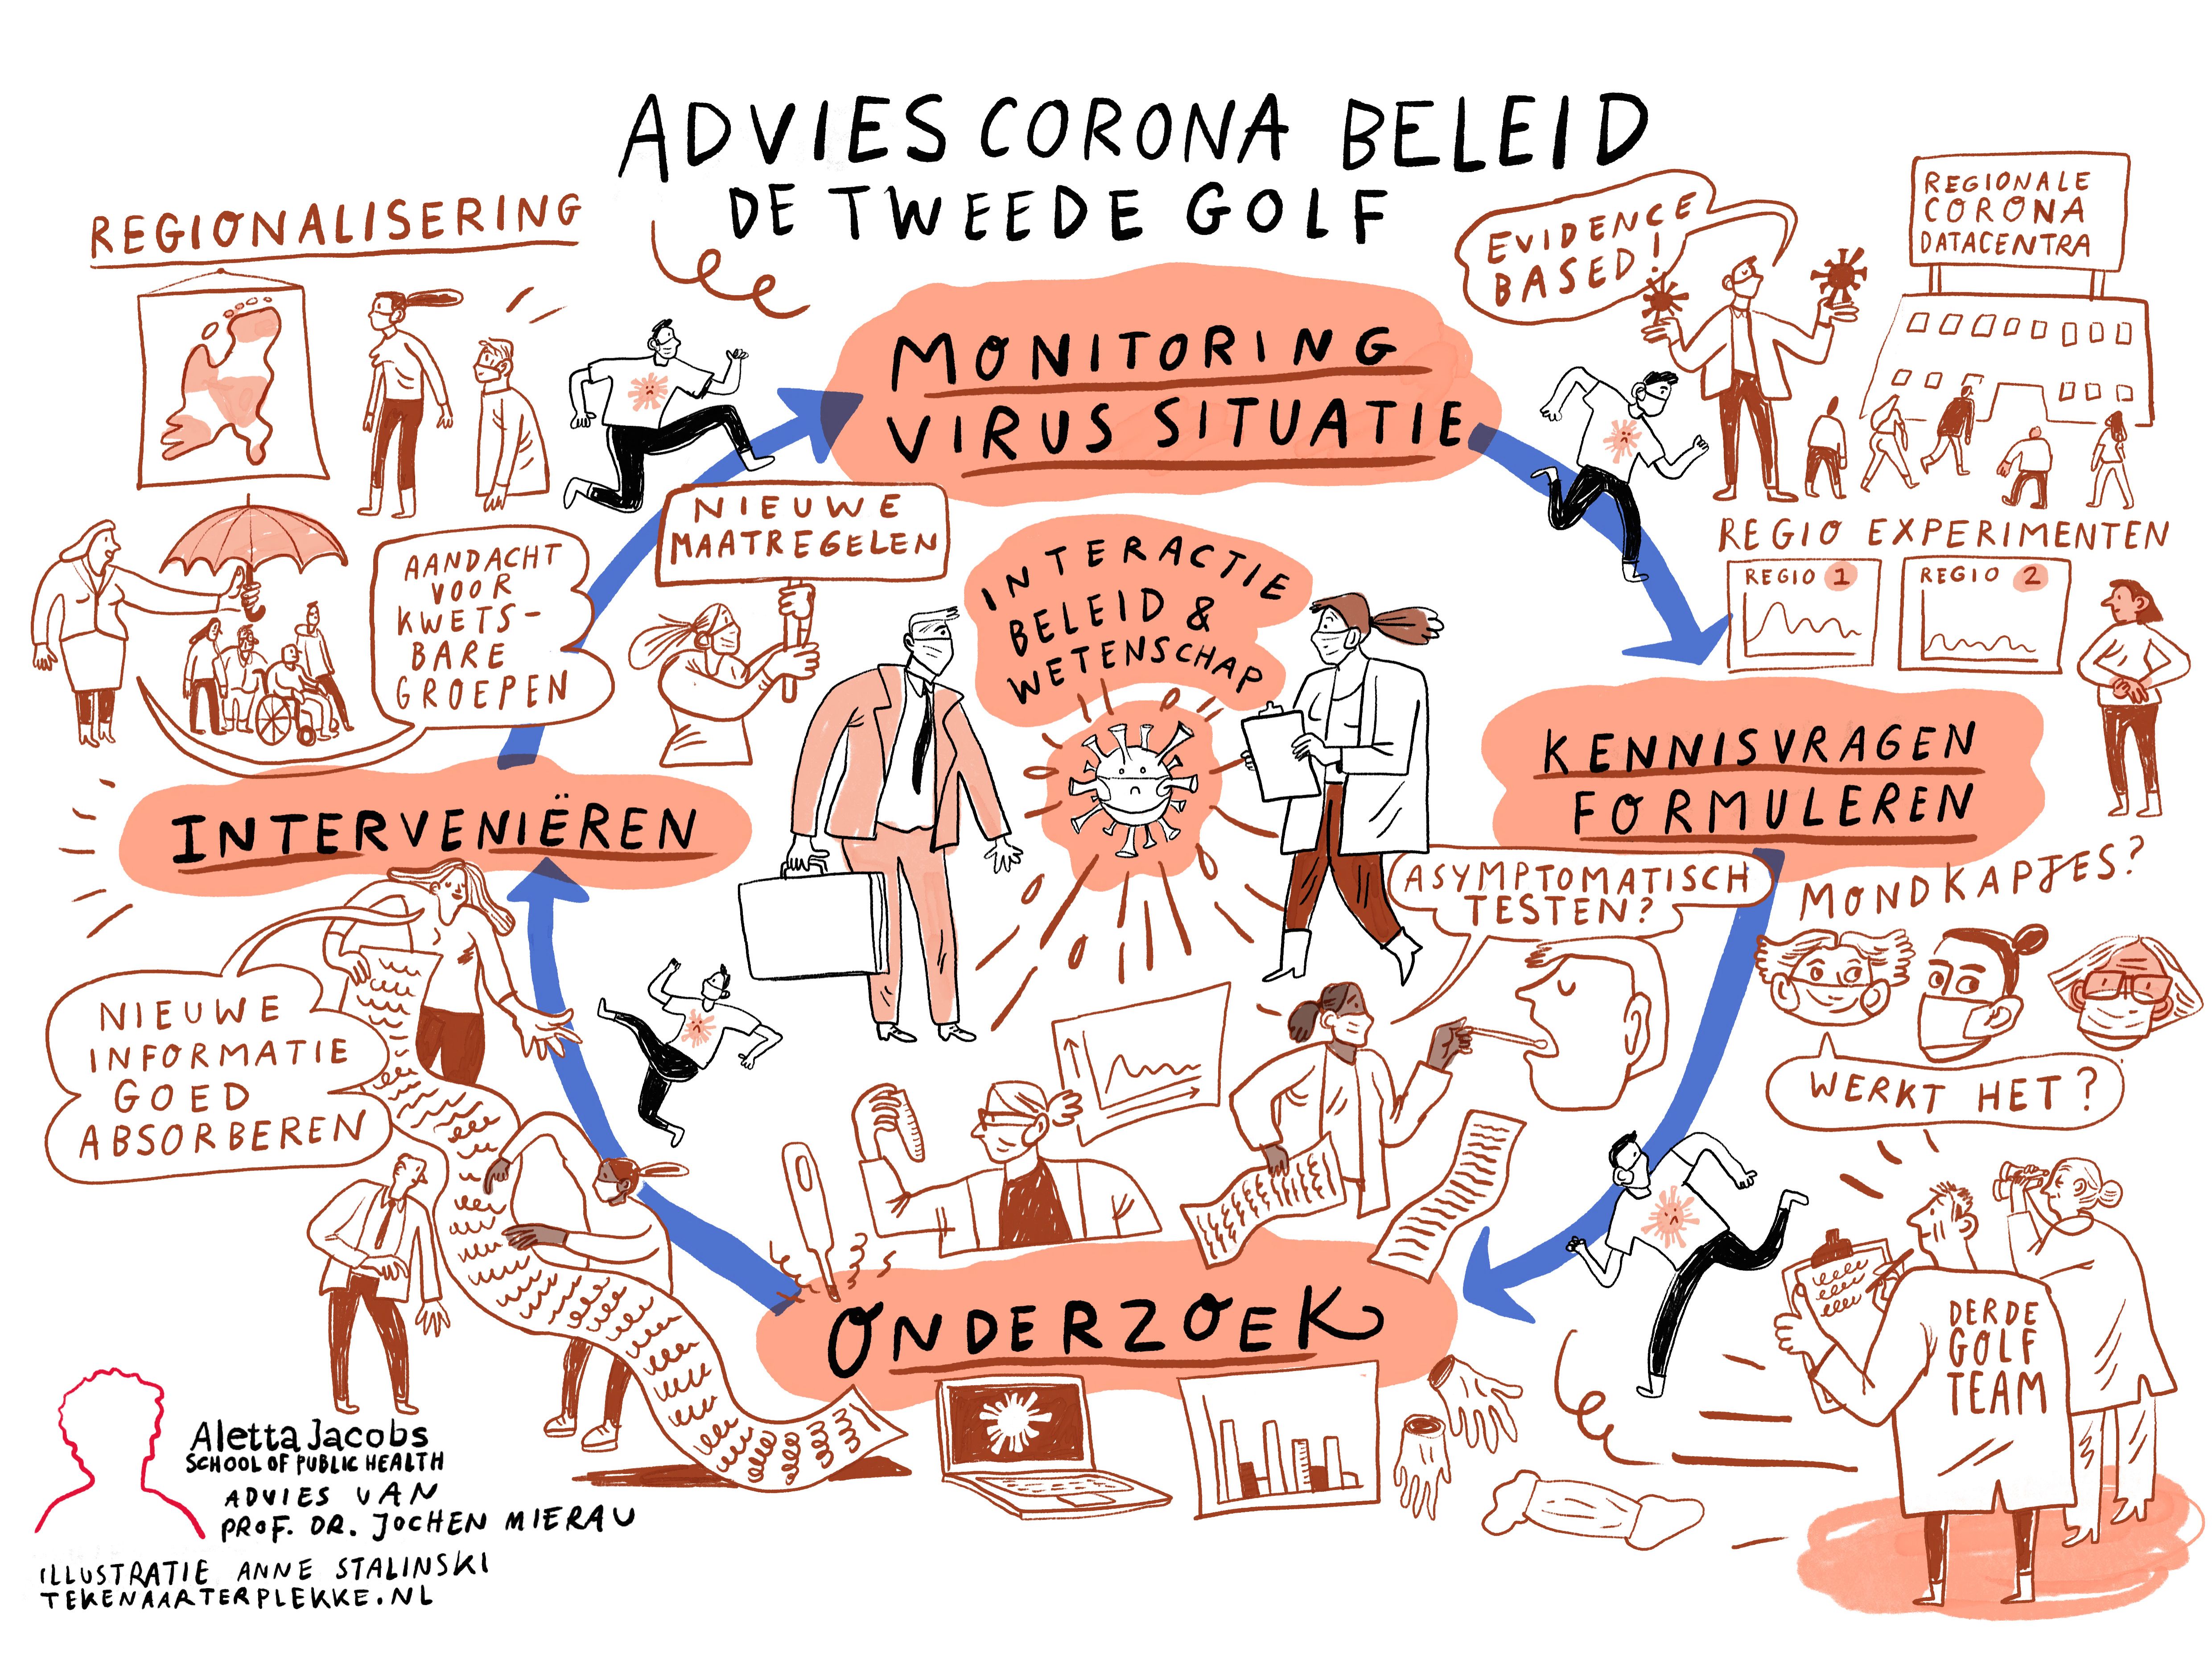 ADVIES CORONA BELEID
DE TWEEDE GOLF
REGIONALISERING
MONITORING
VIRUS SITUATIE
EVIDENCE
BASED!
REGIONALE
CORONA
DATACENTRA
REGIO EXPERIMENTEN
REGIO 1
REGIO 2
NIEUWE
MAATREGELEN
AANDACHT
VOOR
KWETS-
BARE
GROEPEN
INTERACTIE
BELEID &
WETENSCHAP
KENNISVRAGEN
FORMULEREN
INTERVENIËREN
ASYMPTOMATISCH
TESTEN?
MONDKAPJES?
WERKT HET?
NIEUWE
INFORMATIE
GOED
ABSORBEREN
ONDERZOEK
DERDE
GOLF
TEAM
Aletta Jacobs
SCHOOL OF PUBLIC HEALTH
ADVIES VAN
PROF. DR. JOCHEN MIERAU
ILLUSTRATIE ANNE STALINSKI
TEKENAARTERPLEKKE.NL